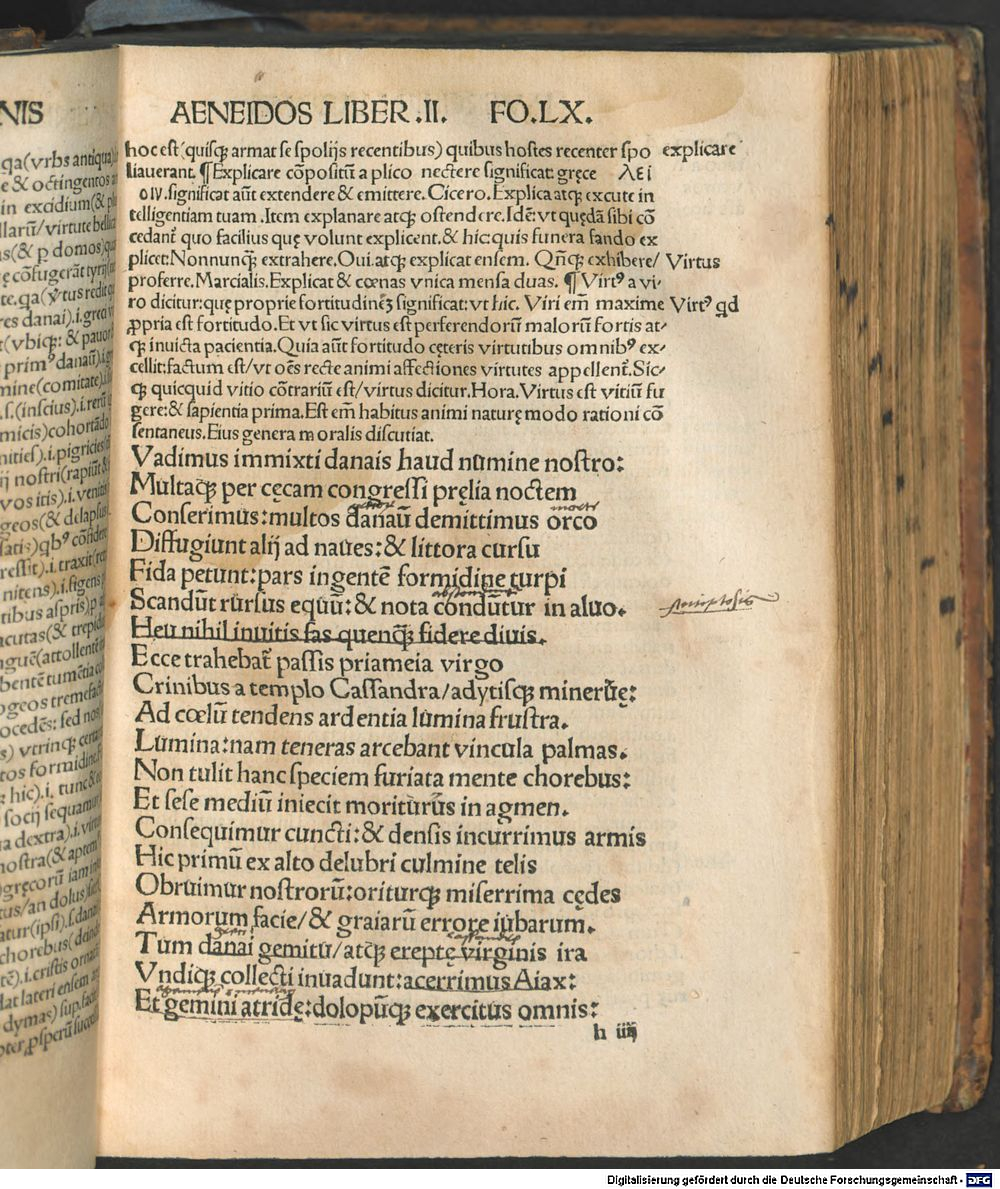 NIS
qa(vrbs antiqua)
e & octingentos
in excidium(&
llarū/virtute
s(& p domos)
ę cōfugerāt tyrij
res danai).i.
t(vbiqꝫ: & pauor
primꝰ danaū).i.
mine(comitate)
.s.(inscius).i.rerū
micis)cohortādo
nities).i.pigricies
ij nostri(rapiūt &
vos itis).i.
geos(& delapsus
qbꝰ cōfidere
ressit).i.traxit
nitens).i.
tibus aspris)
acutas(& trepid
nguē(attollentē
bentē tumētia
ogeos tremefac
ocedēs: sed
s) vtrinqꝫ
tos formidine
hic).i. tunc &
socij sequamur
a dextra).i.
nostra(& aptem
gręcorū iam
tus/an dolus)
atur(ipsi).s.
chorebus(deinde
tē).i.cristis
dat lateri ensem
dymas)
pter,ꝓsperū
AENEIDOS LIBER .II. FO.LX.
hoc est(quisqꝫ armat se spolijs recentibus) quibus hostes recenter spo explicare
liauerant. ¶Explicare cōpositū a plico nectere significat: gręce λεί
οιν.significat aūt extendere & emittere. Cicero. Explica atqꝫ excute in
telligentiam tuam .Item explanare atqꝫ ostendere.Idē: vt quędā sibi cō
cedant̄ quo facilius quę volunt explicent.& hic:quis funera fando ex
plicet:Nonnunqꝫ extrahere.Oui.atqꝫ explicat ensem. Qn̄qꝫ exhibere/ Virtus
proferre.Marcialis.Explicat & cœnas vnica mensa duas. ¶Virtꝰ a vi⸗
ro dicitur:quę proprie fortitudinēꝫ significat:vt hic. Viri em̄ maxime Virtꝰ qd
ꝓpria est fortitudo.Et vt sic virtus est perferendorū malorū fortis at⸗
qꝫ inuicta pacientia.Quia aūt fortitudo cęteris virtutibus omnibꝰ ex⸗
cellit:factum est/vt oēs recte animi affectiones virtutes appellent̄.Sic⸗
qꝫ quicquid vitio cōtrariū est/virtus dicitur.Hora.Virtus est vitiū fu
gere:& sapientia prima.Est em̄ habitus animi naturę modo rationi cō
sentaneus.Eius genera moralis discutiat.
Vadimus immixti danais haud numine nostro:
Multaqꝫ per cęcam congressi pręlia noctem
Conserimus:multos danaū demittimus orco
Diffugiunt alij ad naues:& littora cursu
Fida petunt:pars ingentē formidine turpi
Scandūt rursus equū:& nota condūtur in aluo.
Heu nihil inuitis fas quenqꝫ fidere diuis.
Ecce trahebat̄ passis priameia virgo
Crinibus a templo Cassandra/adytisqꝫ mineruę:
Ad cœlū tendens ardentia lumina frustra.
Lumina:nam teneras arcebant vincula palmas.
Non tulit hanc speciem furiata mente chorebus:
Et sese mediū iniecit moriturus in agmen.
Consequimur cuncti:& densis incurrimus armis
Hic primū ex alto delubri culmine telis
Obruimur nostrorū:oriturqꝫ miserrima cędes
Armorum facie/& graiarū errore iubarum.
Tum danai gemitu/atqꝫ ereptę virginis ira
Vndiqꝫ collecti inuadunt:acerrimus Aiax:
Et gemini atridę:dolopūqꝫ exercitus omnis:
h iiij
Digitalisierung gefördert durch die Deutsche Forschungsgemeinschaft - DFG